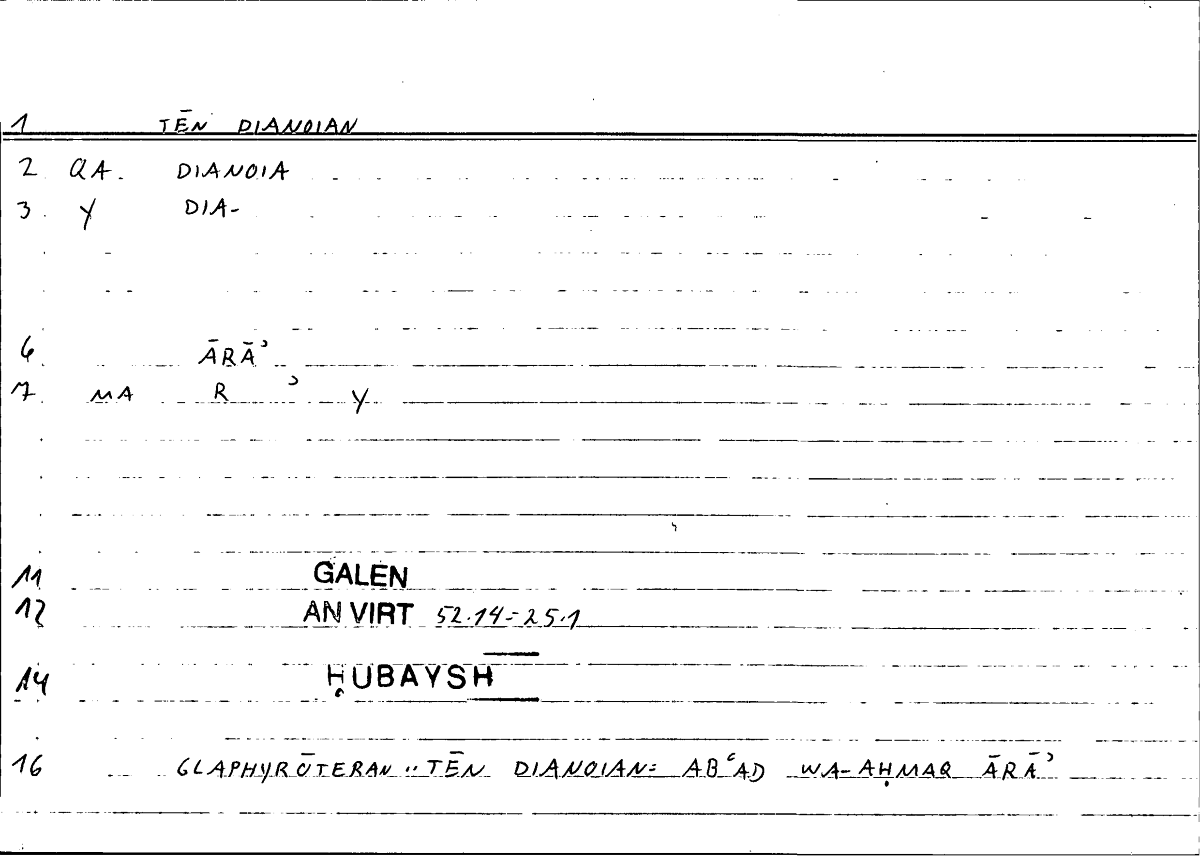 1 TĒN DIANOIAN
2 QA. DIANOIA
3. Y DIA-
6. ĀRĀʾ
7. MA R ʾ Y
11 GALEN
12 AN VIRT 52.14=25.1
14 ḤUBAYSH
16 GLAPHYRŌTERAN..TĒN DIANOIAN= ABʿAD WA-AḤMAQ ĀRĀʾ